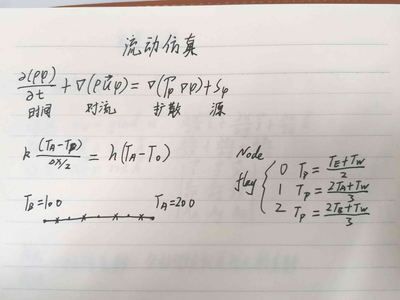 流动仿真
∂(ρφ)/∂t + ∇(ρu⃗φ) = ∇(Γφ ∇φ) + Sφ
时间 对流 扩散 源
k (TA-TP)/(Δx/2) = h(TA-T0)
Node
flag
0 Tp = (TE+TW)/2
1 Tp = (2TA+TW)/3
2 Tp = (2TB+TW)/3
TB=100 TA=200